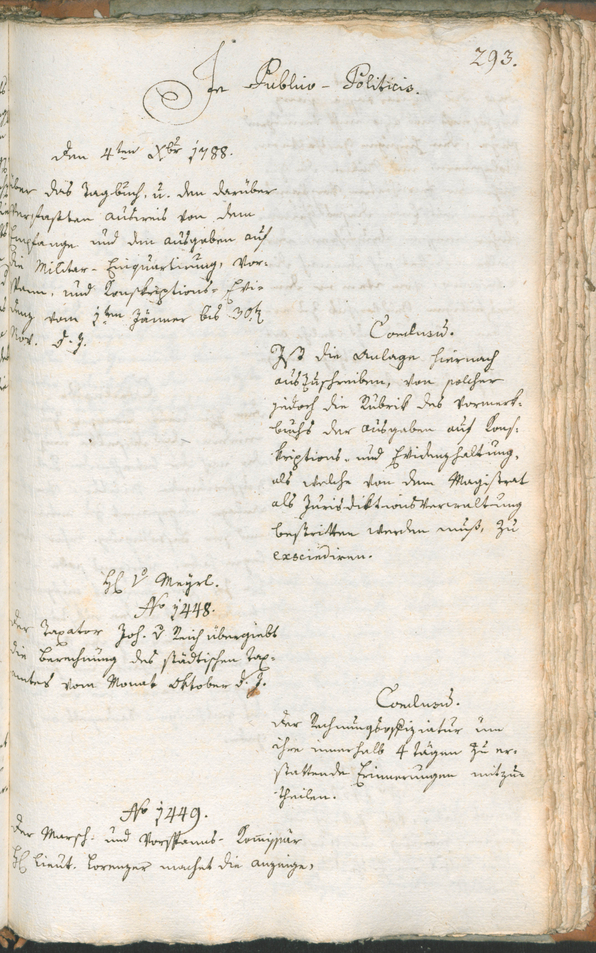 293.
In Publico-Politicis.
den 4ten Xbr 1788.
über das Tagbuch, u. den darüber
verfaßten Ausweis von dem
Empfange und den Ausgaben auf
die Militar-Einquartirung, Vor-
spann, und Konskriptions-Evi-
denz vom 1ten Jänner bis 30t
Nov. d. J.
Conclusu.
Ist die Anlage hiernach
auszuschreiben, von solcher
jedoch die Rubrik des Vormerk-
buchs der Ausgaben auf Kons-
kriptions- und Evidenzhaltung,
als welche von dem Magistrat
als Jurisdiktionsverwaltung
bestritten werden muß, zu
exsciediren.
H v Meyrl.
No 1448.
Der Taxator Joh. v Reich übergiebt
die Berechnung des städtischen Tax-
amtes vom Monat Oktober d. J.
Conclusu.
Der Rechnungsoffiziatur um
ihre innerhalb 4 Tägen zu er-
stattende Erinnerungen mitzu-
theilen.
No 1449.
Der Marsch- und Vorspanns-Komissär
H Lieut. Lorenzer machet die Anzeige,